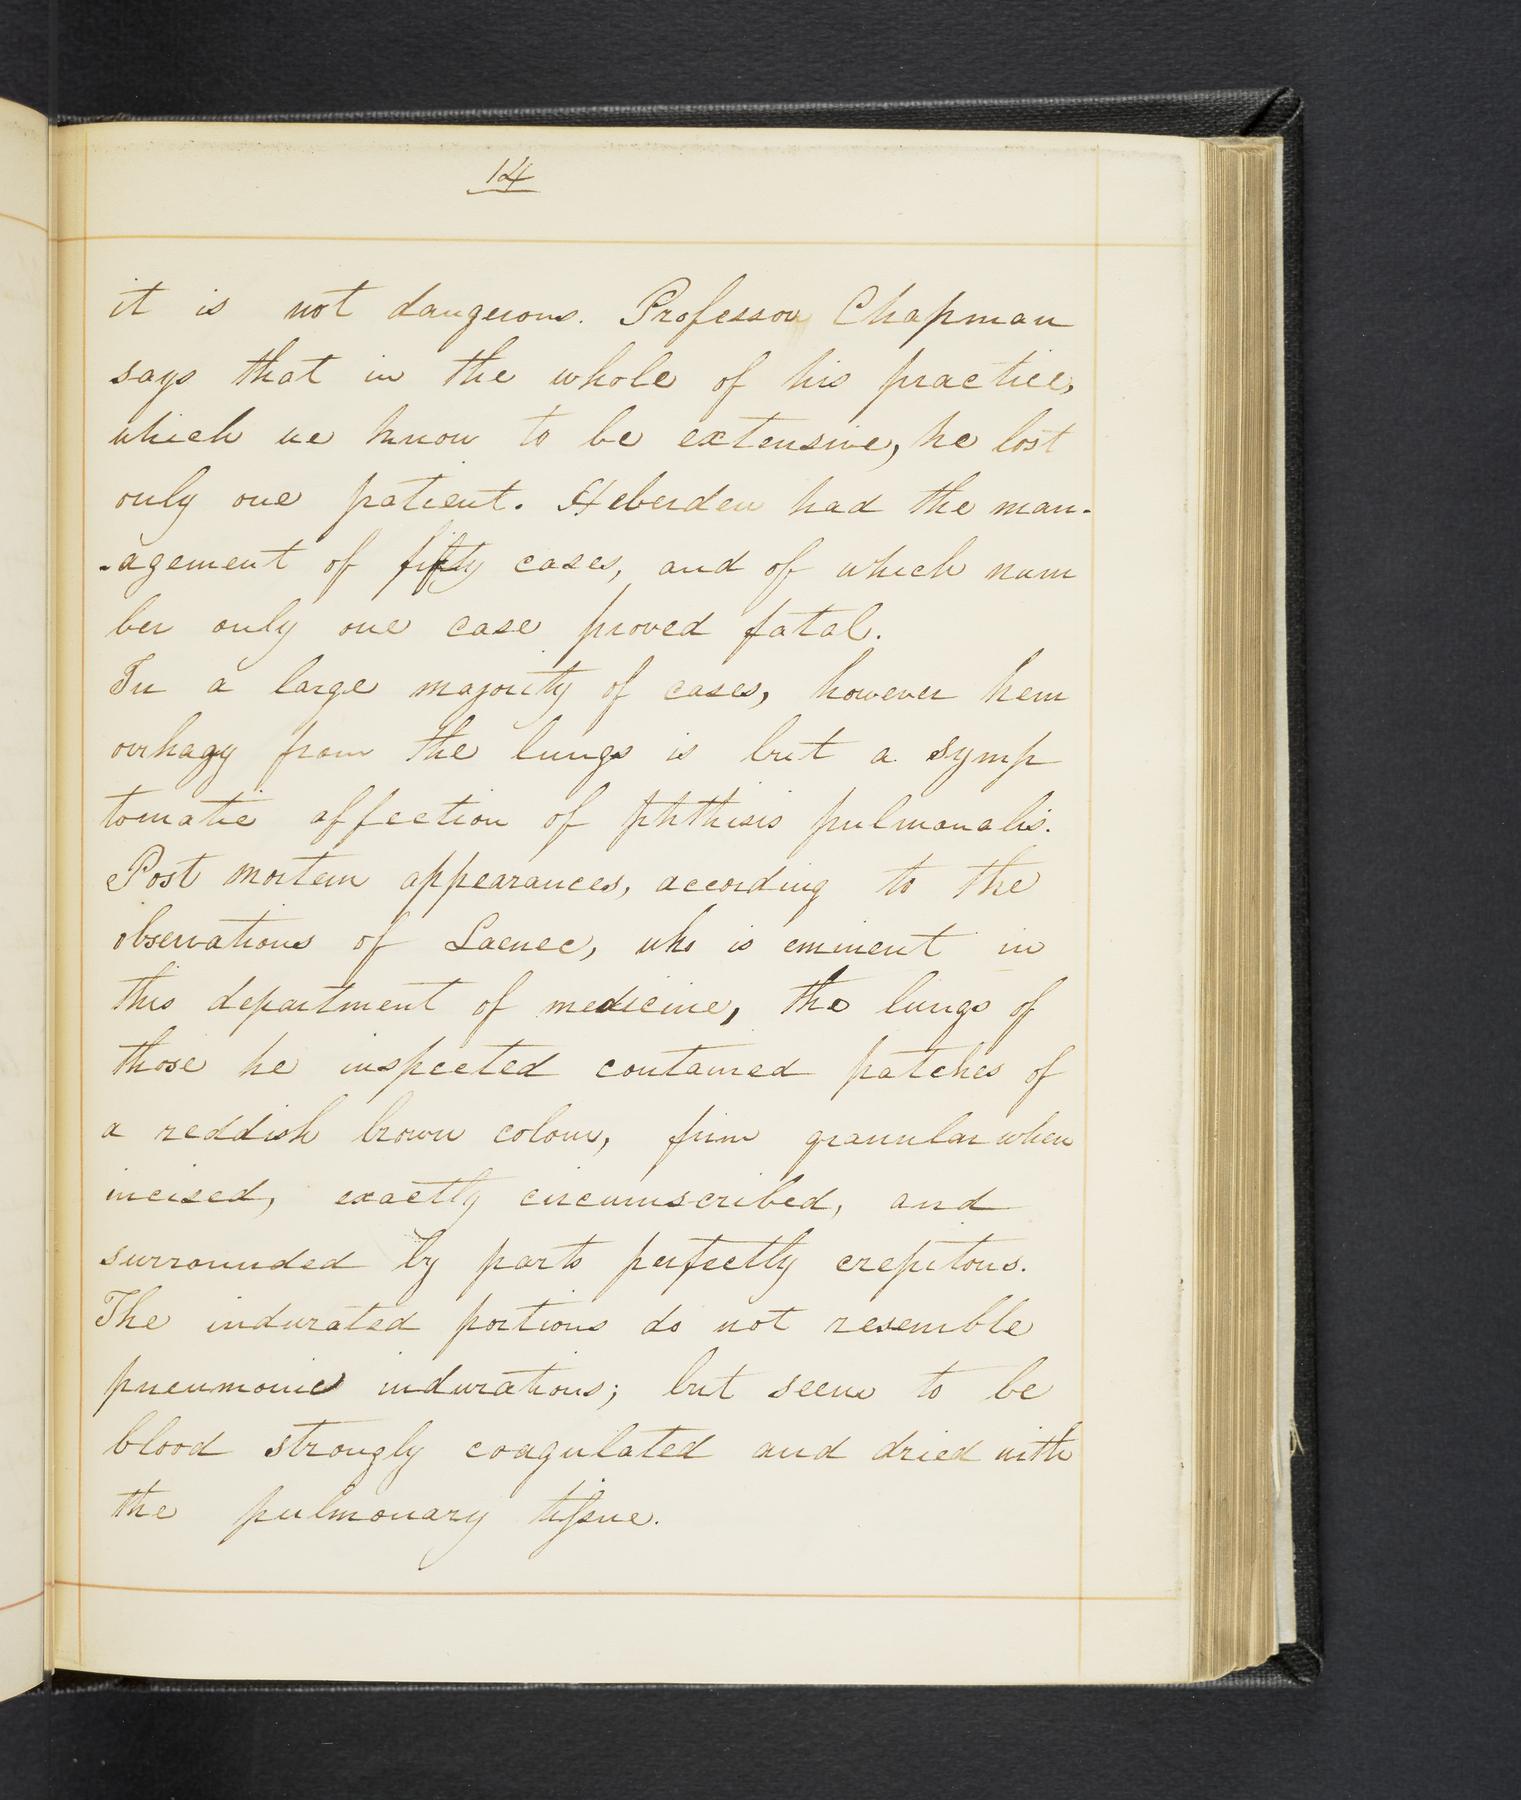 14
it is not dangerous. Professor Chapman
says that in the whole of his practice,
which we know to be extensive, he lost
only one patient. Heberden had the man-
-agement of fifty cases, and of which num
ber only one case proved fatal.
In a large majority of cases, however hem
orrhagy from the lungs is but a symp
tomatic affection of phthisis pulmonalis.
Post mortem appearances, according to the
observations of Laenec, who is eminent in
this department of medicine, the lungs of
those he inspected contained patches of
a reddish brown colour, firm granular when
incised, exactly circumscribed, and
surrounded by parts perfectly crepitous.
The indurated portions do not resemble
pneumonic indurations; but seem to be
blood strongly coagulated and dried with
the pulmonary tissue.